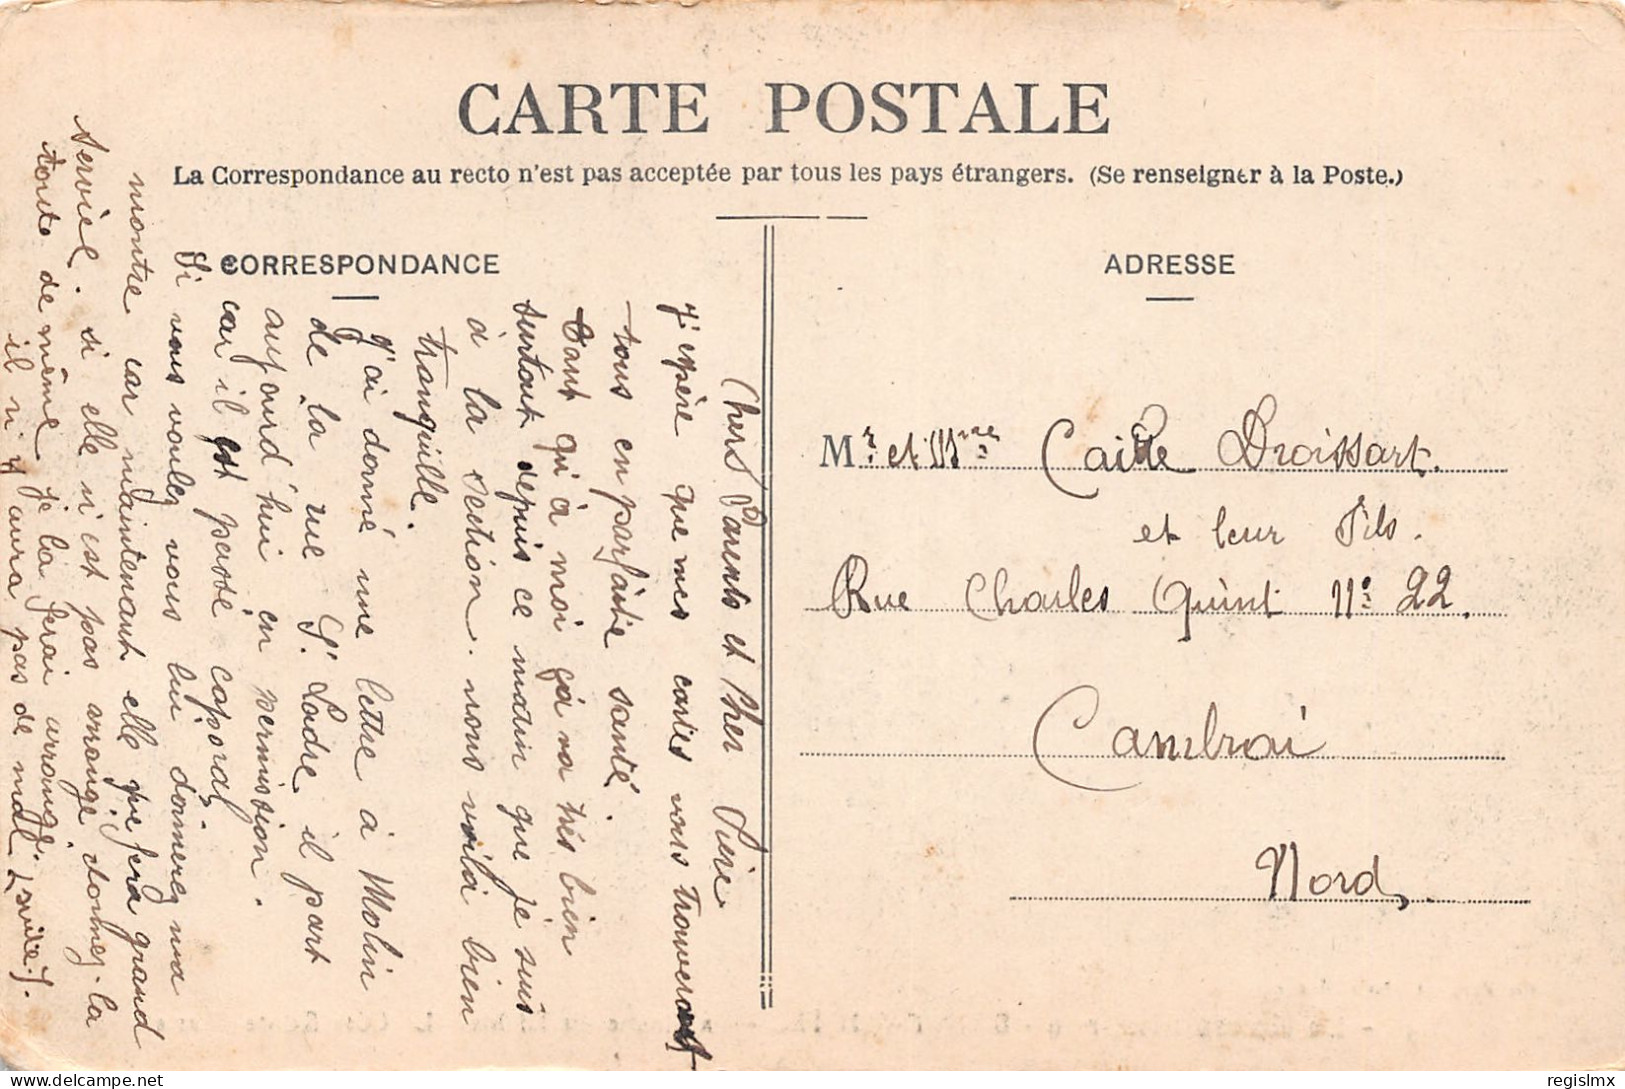 CARTE POSTALE
La Correspondance au recto n'est pas acceptée par tous les pays étrangers. (Se renseigner à la Poste.)
CORRESPONDANCE
Chers Parents et cher
J'espère que mes cartes vous trouveront
tous en parfaite santé.
Tant qu'à moi ça va très bien
surtout depuis ce matin que je suis
à la section. nous voila bien
tranquille.
J'ai donné une lettre à Molin
de la rue St Ladre il part
aujourd'hui en permission.
car il est passé caporal
Si vous voulez vous lui donnerez ma
montre car maintenant elle me fera grand
service. si elle n'est pas arrangé donnez-la
toute de même je la ferai arrangé.
il n'y aura pas de mal (suite).
ADRESSE
Mr. et Mme Caille Droissart.
et leur Fils.
Rue Charles Quint No 22.
Cambrai
Nord
regislmx